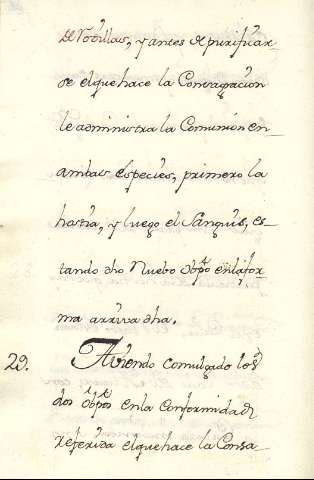 de Rodillas, y antes de purificar
se el que hace la Consagracion
le administra la Comunion en
ambas especies, primero la
hostia, y luego el Sanguis, es-
tando dho Nuebo Obpo en la for-
ma arriva dha.
29. Aviendo comulgado los
dos Obpos en la Conformidad
referida el que hace la Consa-